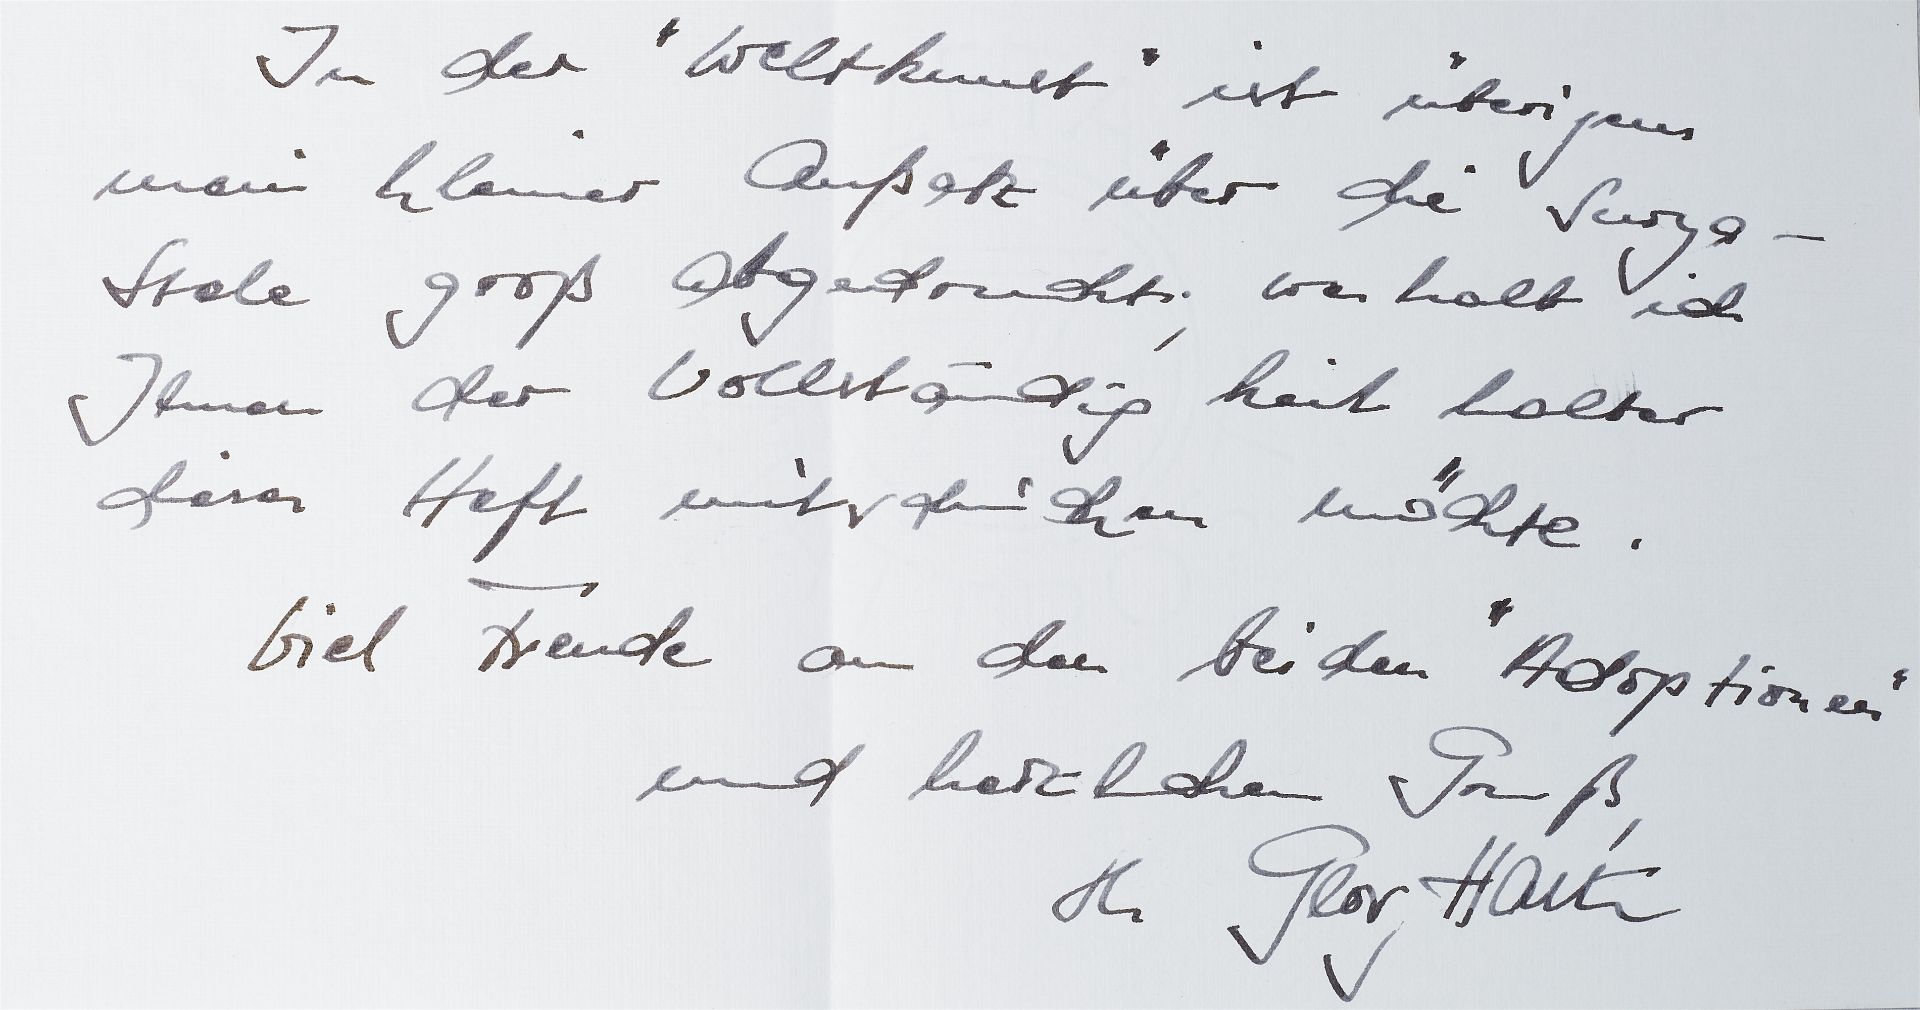 In der "Weltkunst" ist übrigens
mein kleiner Aufsatz über die Surya-
Stele groß abgedruckt, weshalb ich
Ihnen der Vollständigkeit halber
dieses Heft mitschicken möchte.
Viel Freude an den beiden "Adoptionen"
und herzlichen Gruß,
Ihr Georg